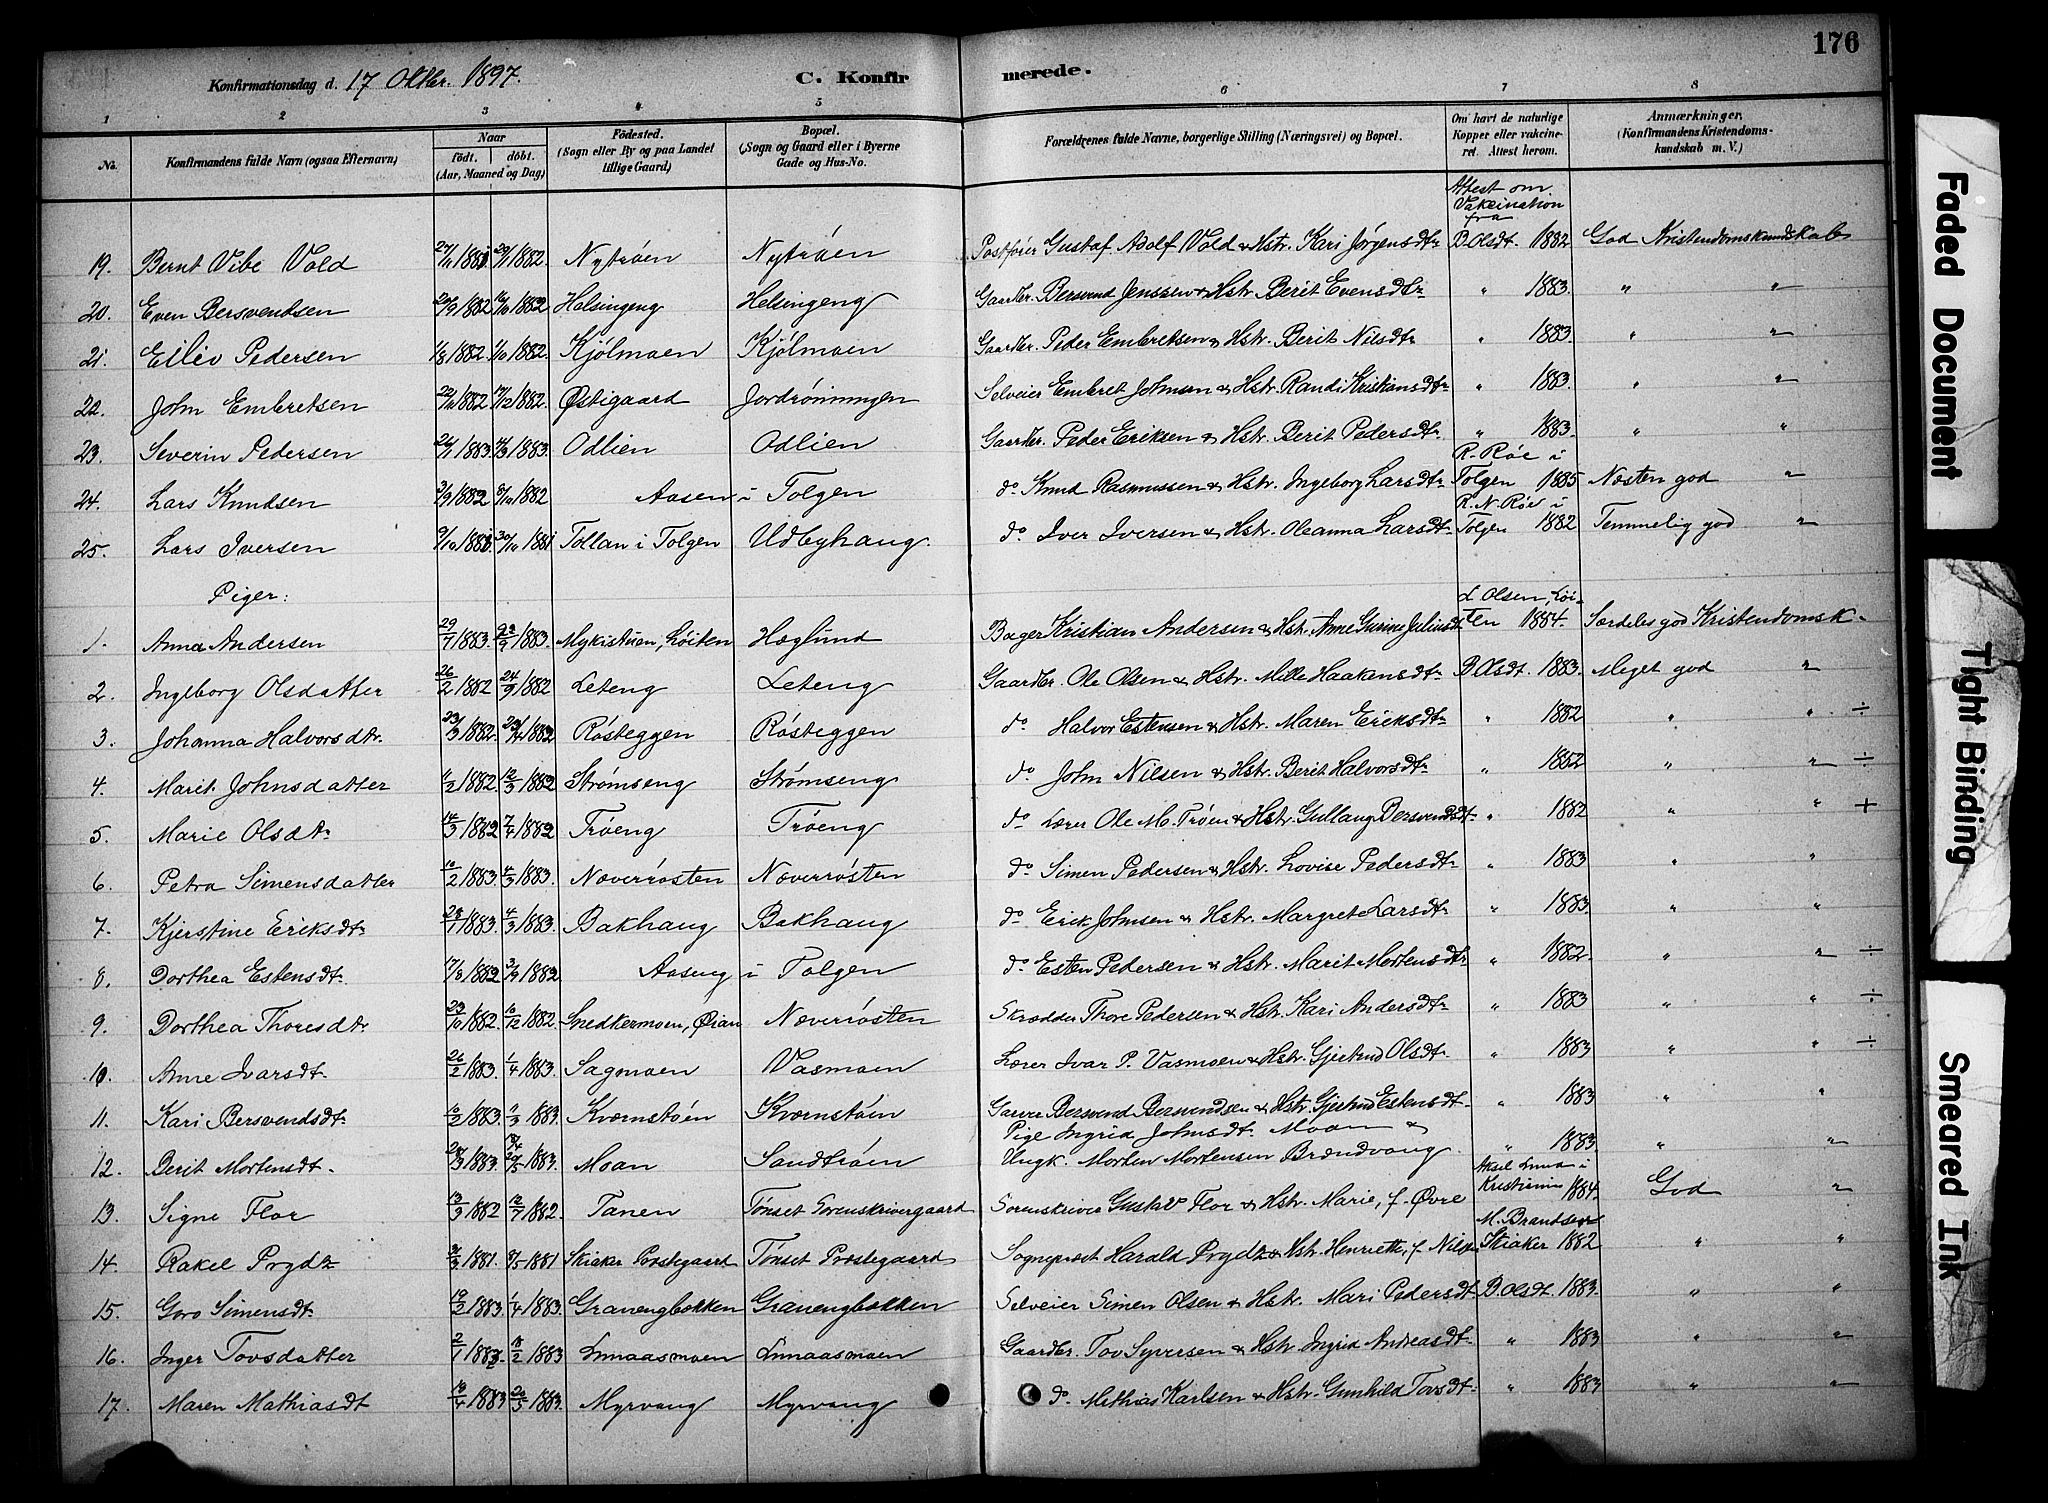 176
Konfirmationsdag d. 17 Oktbr. 1897. C. Konfirmerede.
1 2 3 4 5 6 7 8
No. Konfirmandens fulde Navn (ogsaa Efternavn) Naar födt. döbt. (Aar, Maaned og Dag) Födested. (Sogn eller By og paa Landet tillige Gaard) Bopæl. (Sogn og Gaard eller i Byerne Gade og Hus-No. Forældrenes fulde Navne, borgerlige Stilling (Næringsvei) og Bopæl. Om havt de naturlige Kopper eller vakcineret. Attest herom. Anmærkninger. (Konfirmandens Kristendomskundskab m. V.)
Attest om Vakcination fra
19. Bernt Vibe Vold 27/11 1881 29/1 1882. Nytrøen Nytrøen Postfører Gustaf Adolf Vold & Hstr. Kari Jørgensdtr B. Olsdt. 1882 God Kristendomskundskab
20. Even Bersvendsen 1882 1882 Helsingeng Helsingeng Gaardbr. Bersvend Jenssen & Hstr. Berit Evensdtr " 1883. " "
21. Eiliv Pedersen 1/8 1882. 1/10 1882. Kjølmoen Kjølmoen Gaardbr. Peder Embretsen & Hstr. Berit Nilsdtr " 1883. " "
22. John Embretsen 1882 17/12 1882. Østigaard Jordrønningen Selveier Embret Johnsen & Hstr. Randi Kristiansdtr " 1883. " "
23. Severin Pedersen 1883. 1883. Odlien Odlien Gaardbr. Peder Eriksen & Hstr. Berit Pedersdtr " 1883. " "
24. Lars Knudsen 3/9 1882 8/10 1882 Aasen i Tolgen do Knud Rasmussen & Hstr. Ingeborg Larsdtr R. Røe i Tolgen 1885 Næsten god "
25. Lars Iversen 9/10 1881 30/10 1881 Tollan i Tolgen Udbyhaug. do Iver Iversen & Hstr. Oleanna Larsdtr R. N. Røe i Tolgen 1882 Temmelig god "
Piger:
1. Anna Andersen 29/7 1883. 23/9 1883. Mykistuen, Løiten Hæglund Bager Kristian Andersen & Hstr. Anne Gurine Juliusdt L. Olsen, Løiten 1884. Særdeles god Kristendomsk.
2. Ingeborg Olsdatter 26/2 1882 24/9 1882 Leteng Leteng Gaardbr. Ole Olsen & Hstr. Mille Haakensdtr B. Olsdt. 1883. Meget god "
3. Johanna Halvorsdtr. 23/3 1882. 23/4 1882 Røsteggen Røsteggen do Halvor Estensen & Hstr. Maren Eriksdtr " 1882 " " ÷
4. Marit Johnsdatter 1882 12/3 1882 Strømseng Strømseng do John Nilsen & Hstr. Berit Halvorsdtr " 1882 " " ÷
5. Marie Olsdtr 14/3 1882 7/4 1882 Trøeng Trøeng do Lærer Ole M. Trøen & Hstr. Gullaug Bersvendsdt " 1882 " " +
6. Petra Simensdatter 10/2 1883. 4/3 1883. Næverrøsten Næverrøsten do Simen Pedersen & Hstr. Lovise Pedersdtr " 1883 " "
7. Kjerstine Eriksdtr 23/1 1883. 4/3 1883. Bakhaug Bakhaug do Erik Johnsen & Hstr. Margret Larsdtr " 1883. " "
8. Dorthea Estensdt. 17/8 1882 3/9 1882. Aaseng i Tolgen do Esten Pedersen & Hstr. Marit Mortensdtr " 1882. " " ÷
9. Dorthea Thoresdtr 23/10 1882. 10/12 1882. Snedkermoen, Øian Næverrøsten Skrædder Thore Pedersen & Hstr. Kari Andersdtr " 1883 " " ÷
10. Anne Ivarsdt. 26/2 1883. 1/4 1883. Sagmoen Vasmoen Lærer Ivar P. Vasmoen & Hstr. Gjertrud Olsdtr " 1883 " " ÷
11. Kari Bersvendsdt. 10/2 1883. 11/3 1883. Kværnstøen Kværnstøen Garver Bersvend Bersvendsen & Hstr. Gjertrud Estensdt. " 1883 " "
12. Berit Mortensdt. 1883. 1883. Moan Sandtrøen Pige Ingrid Johnsdt. Moan & Ungk. Morten Mortensen Brændvang. " 1883. " "
13. Signe Flor 13/3 1882 1882. Tanen Tønset Sorenskrivergaard Sorenskriver Gustav Flor & Hstr. Marie, f. Øvre Aksel i Kristiania 1884. God "
14. Rakel Prydz 1881. 8/5 1881 Skiaker Præstegaard Tønset Præstegaard Sognepræst Harald Prydz & Hstr. Henriette, f. M. Brandser Skiaker 1882 " "
15. Goro Simensdt. 19/2 1883 1/4 1883. Granengbækken Granengbækken Selveier Simen Olsen & Hstr. Mari Pedersdt. B. Olsdt. 1883. " "
16. Inger Tovsdatter 2/1 1883. 18/2 1883 Lnnaasmoen Lnnaasmoen Gaardbr. Tov Syversen & Hstr. Ingrid Andreasdt. " 1883 " "
17. Maren Mathiasdt 1883 20/5 1883. Myrvang Myrvang do. Mathias Karlsen & Hstr. Gunhild Tovsdt. " 1883 " "
Faded Document
Tight Binding
Smeared Ink